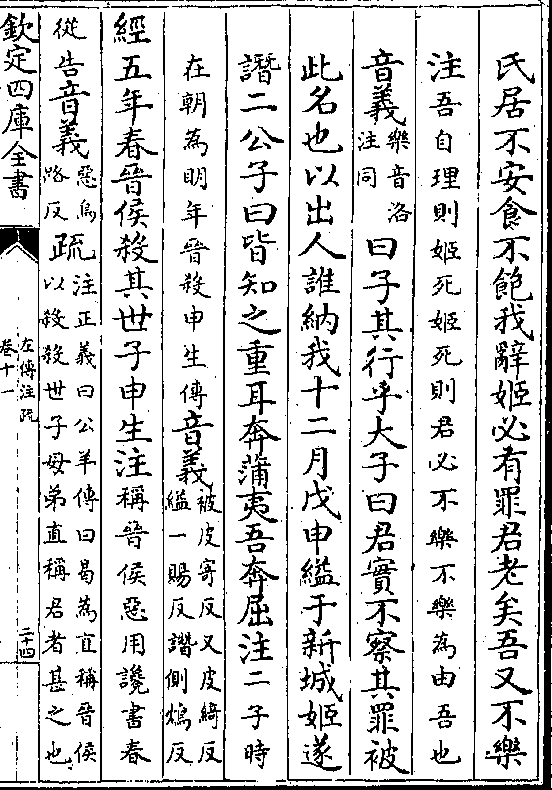 氏居不安食不飽我辭姬必有罪君老矣吾又不樂
注吾自理則姬死姬死則君必不樂不樂為由吾也
音義樂音洛注同曰子其行乎大子曰君實不察其罪被
此名也以出人誰納我十二月戊申縊于新城姬遂
譖二公子曰皆知之重耳奔蒲夷吾奔屈注二子時
在朝為明年晉殺申生傳音義被皮寄反又皮綺反縊一賜反譖側鴆反
經五年春晉侯殺其世子申生注稱晉侯惡用讒書春
從告音義惡烏路反疏注正義曰公羊傳曰曷為直稱晉侯以殺殺世子母弟直稱君者甚之也
欽定四庫全書
左傳注疏
卷十一
二十四